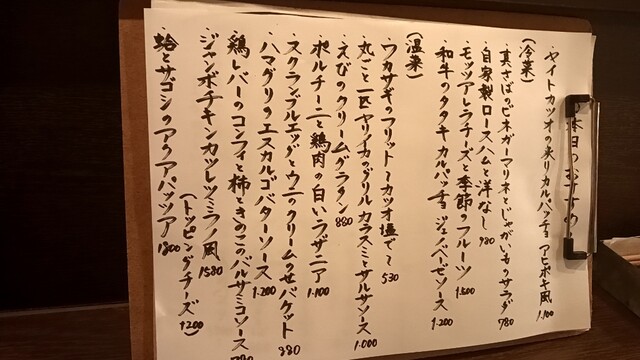 本日のおすすめ
(冷菜)
・ヤイトカツオの炙りカルパッチョ アヒポキ風 1.100
・真さばのビネガーマリネとじゃがいものサラダ 780
・自家製ロースハムと洋なし 980
・モッツアレラチーズと季節のフルーツ 1.500
・和牛のタタキ カルパッチョ ジェノベーゼソース 1.200
(温菜)
・ワカサギのフリット〜カツオ塩で〜 530
・丸ごと一匹ヤリイカのグリル カラスミとサルサソース 1.000
・えびのクリームグラタン 880
・ポルチーニと鶏肉の白いラザニア 1.100
・スクランブルエッグとウニのクリームのせバケット 880
・ハマグリのエスカルゴバターソース 1.200
・鶏レバーのコンフィと柿ときのこのバルサミコソース
・ジャンボチキンカツレツミラノ風 1580
(トッピングチーズ +200)
・蛤とサゴシのアクアパッツア 1800